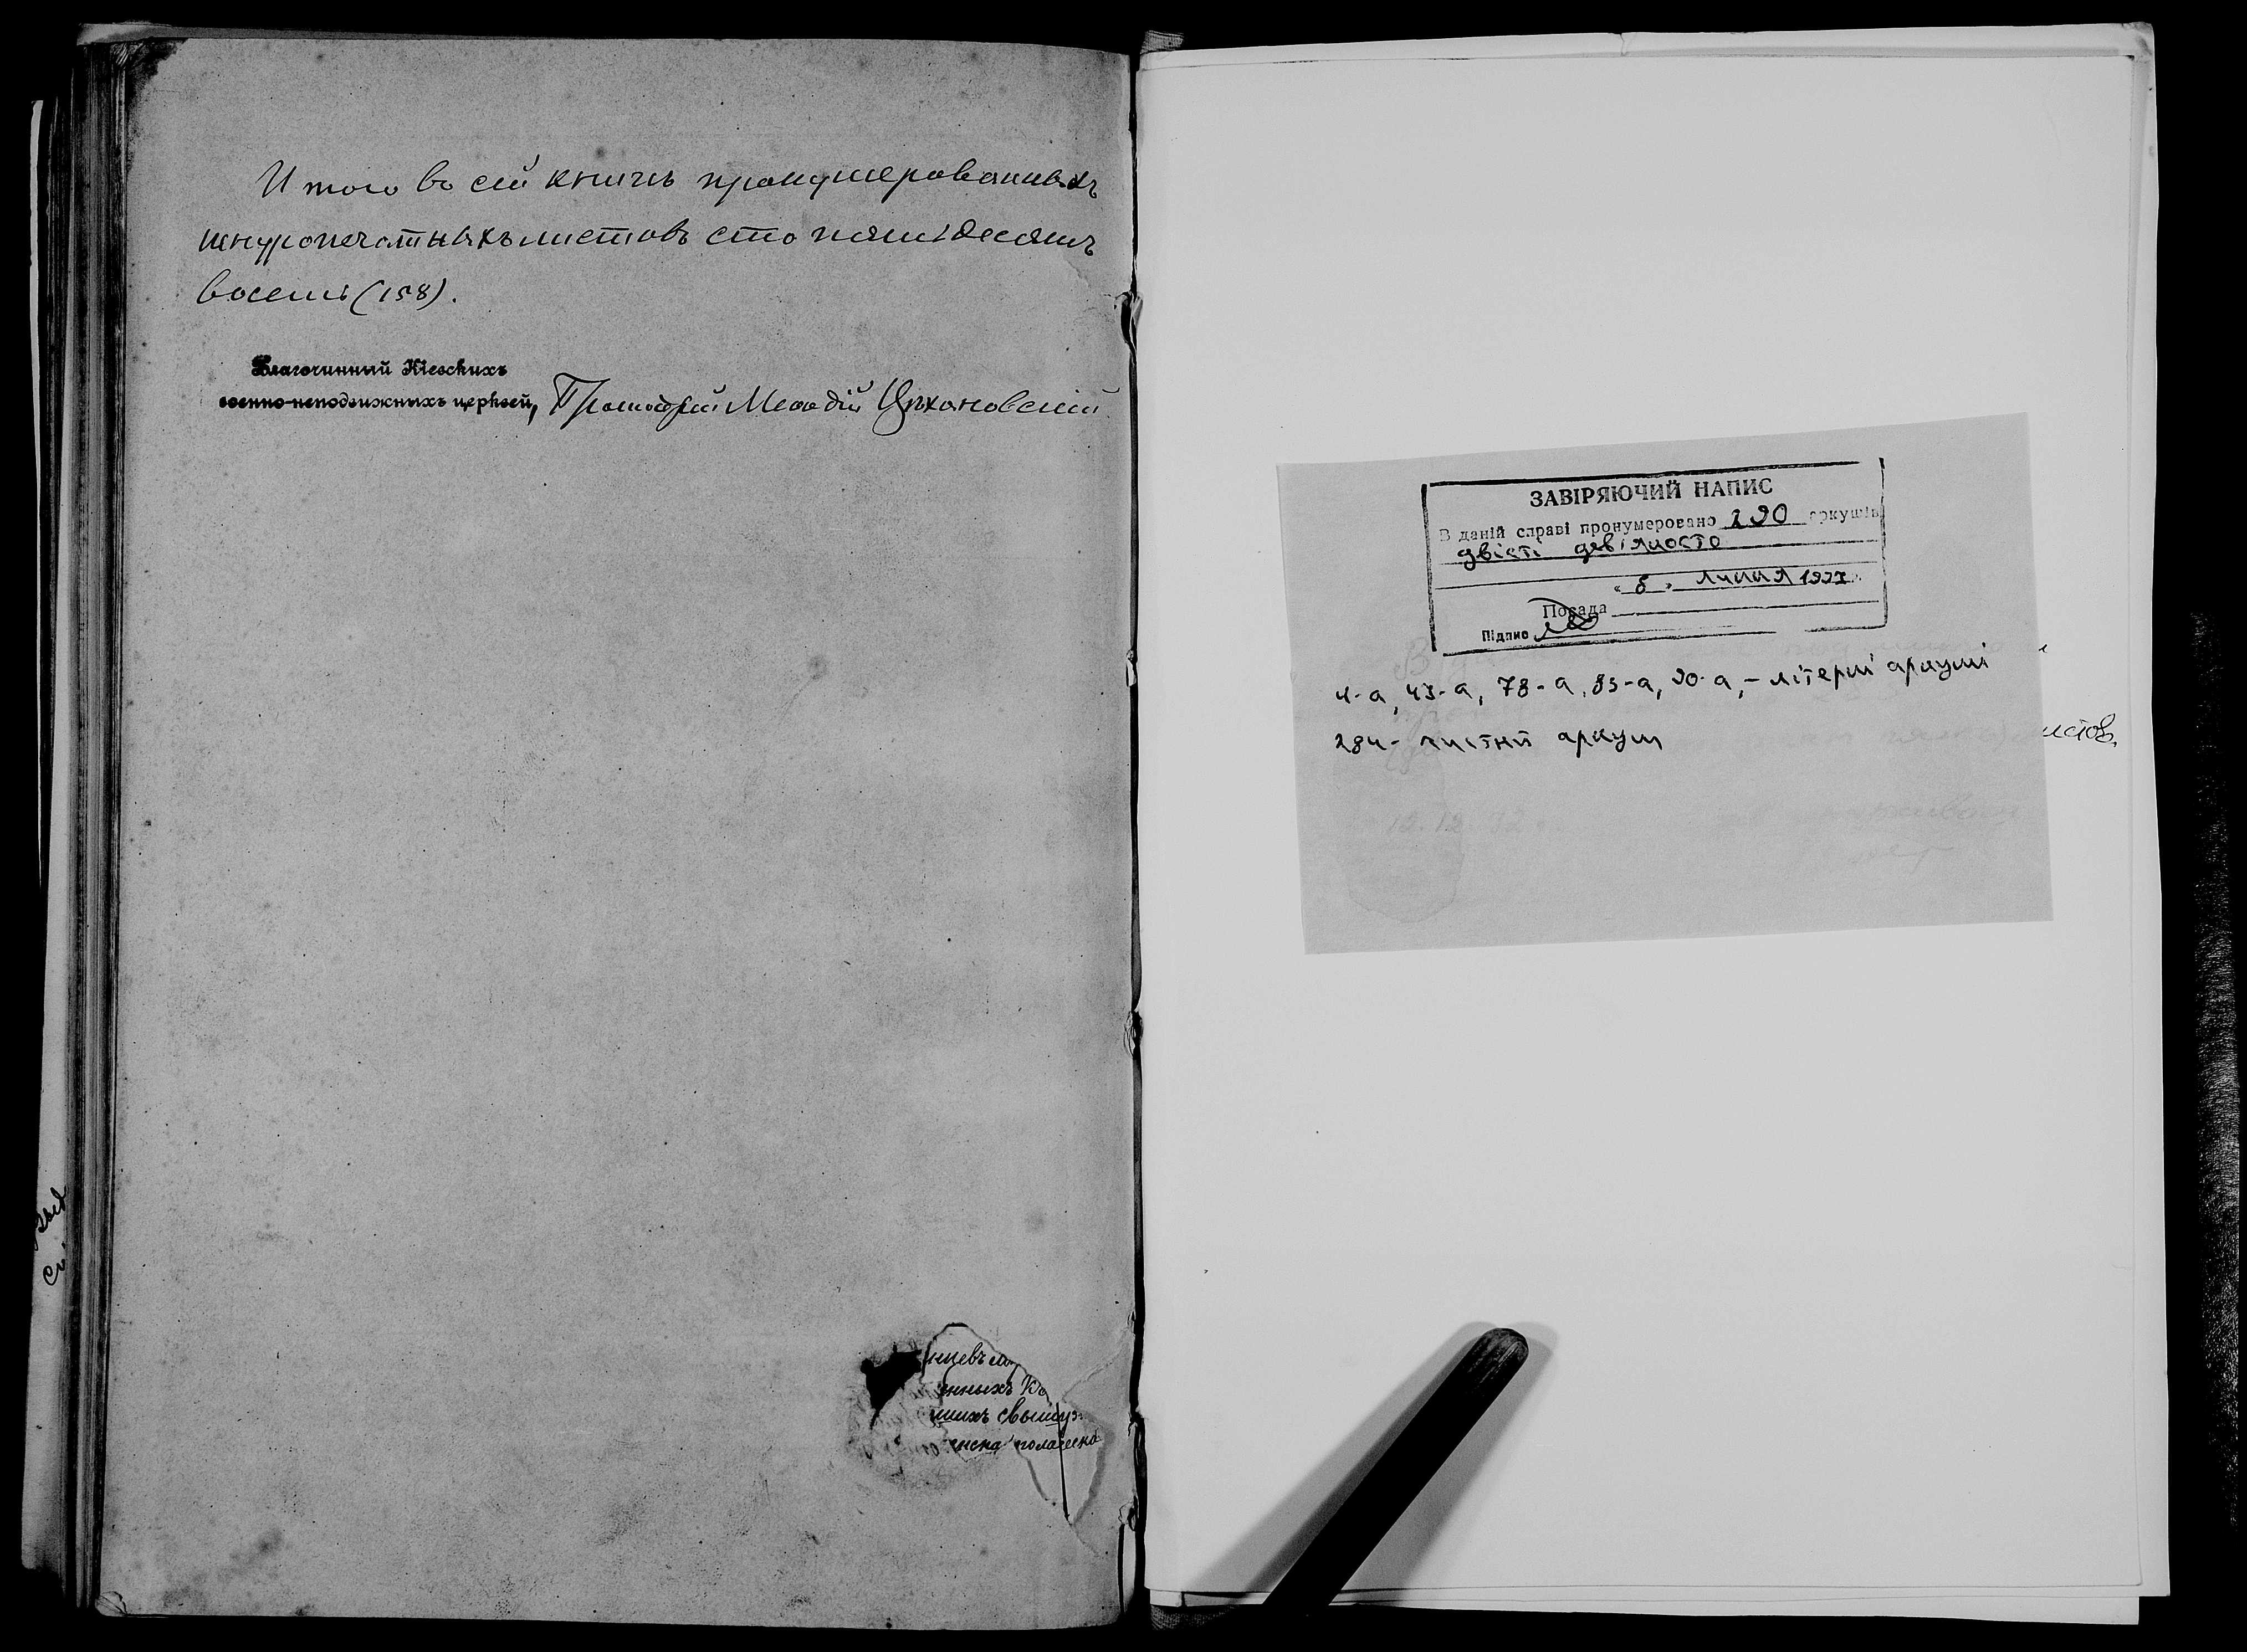 Итого во сей книгѣ пронумерованныхъ
шнуропечатныхъ листовъ сто пятьдесятъ
восемь (158).
Благочинный Кіевскихъ
военно-неподвижныхъ церквей, Протоіерей Меѳодій Цѣхановскій
нныхъ
ЗАВІРЯЮЧИЙ НАПИС
В даній справі пронумеровано 290 аркушів
двісті дев'яносто
« 8 » липня 1997
Посада
Підпис
4-а, 43-а, 78-а, 83-а, 90-а, - літерні аркуші
284 - чистий аркуш
истов
12.12.92